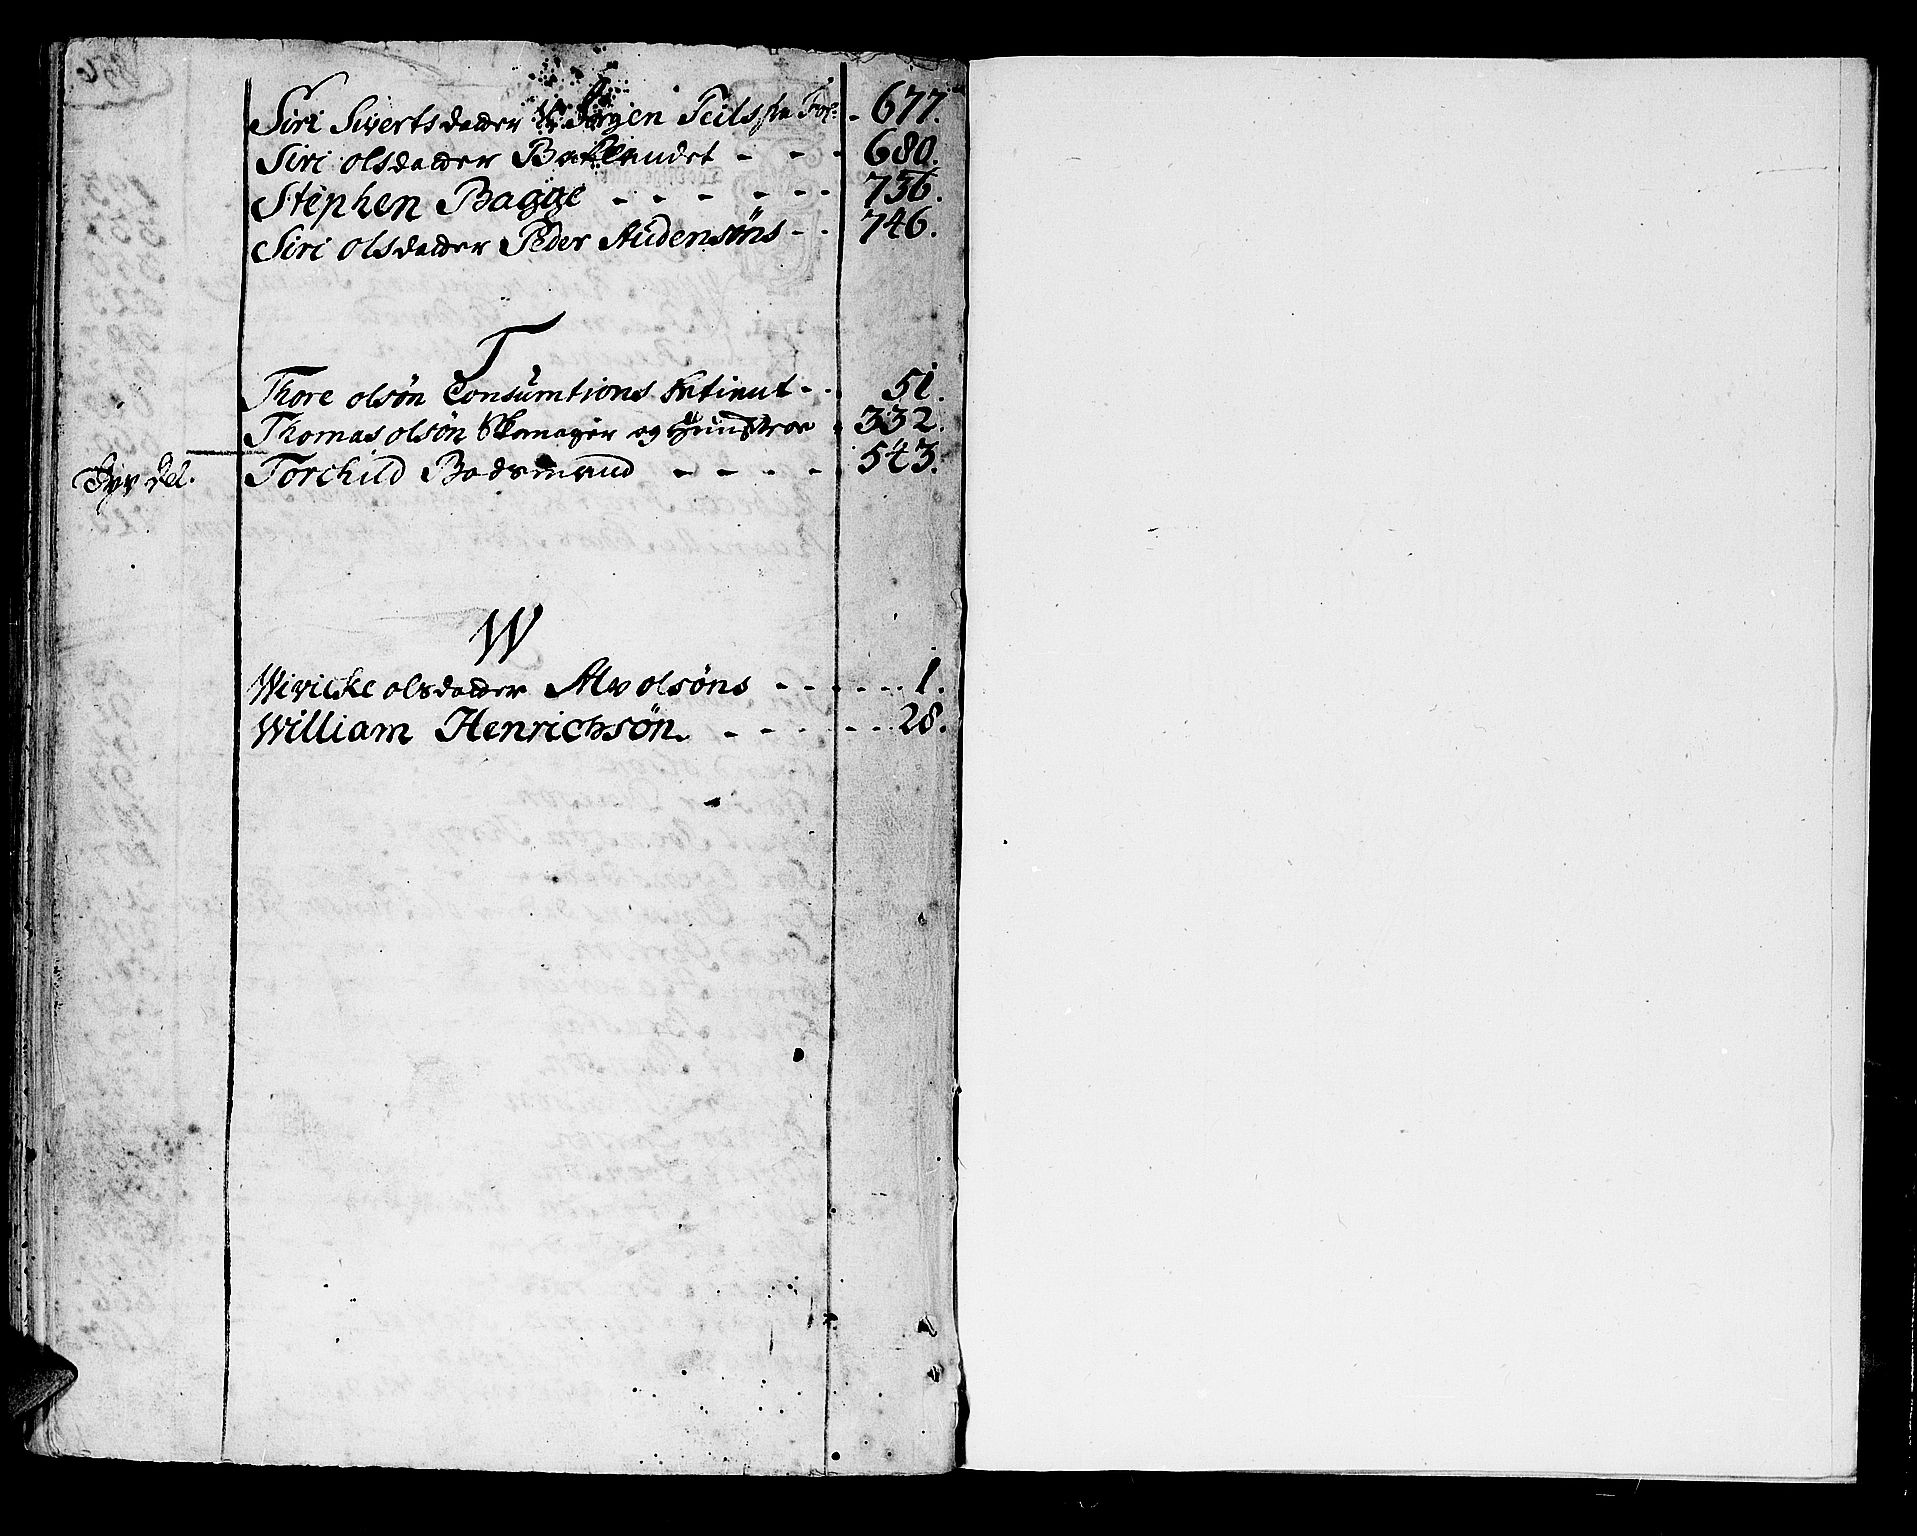 Siri Sivertsdatter Jørgen Teils
677.
Siri olsdatter Baklandet - - - 680.
Stephen Bagge - - - - - - 736.
Siri olsdatter Peder Audensøns - - 746.
T
Thore olsøn Consumtions - - 51.
Thomas olsøn Skomager og Hunstroe 332.
Torchild Bodsmand - - - - - 543.
W
Wivicke olsdatter Alvolsøns - - - - - - 1.
William Henrichsøn. - - - - - - 28.